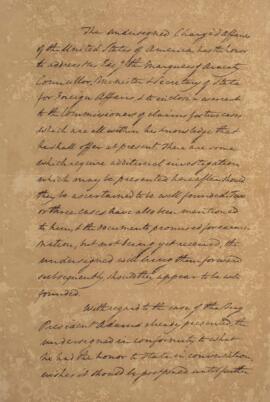 The undersigned Chargé d'affaires
of the United States of America has the honor
to address His Exy the Marquess of Aracaty
Councillor, Minister & Secretary of State
for Foreign Affairs, & to
to the Commissioners of claims for ten cases
which are all within his knowledge that
he shall offer at present. There are some
which require additional investigation
which may be presented hereafter should
they be ascertained to be well founded. Two
or three cases have also been mentioned
to him, & the documents promised for exami-
nation, but not being yet received, the
undersigned will bring them forward
subsequently, should they appear to be well
founded.
With regard to the case of the Brig
President Adams already presented, the
undersigned in conformity to what
he had the honor to state in conversation,
wishes it should be postponed until further